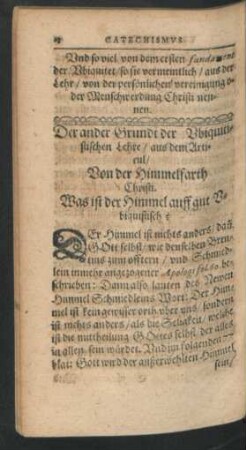 CATECHISMVS
Vnd so viel von dem ersten fundament
der Vbiquitet / so sie vermeintlich / aus der
Lehr / von der persönlichen vereinigung
der Menschwerdung Christi nen-
nen.
Der ander Grundt der Vbiquiti-
stischen Lehre / aus dem Arti-
cul /
Von der Himmelfarth
Christi.
Was ist der Himmel auff gut V-
biquistisch?
DEr Himmel ist nichts anders / dañ
GOtt selbst / wie denselben Bren-
tius zum offtern / und Schmied-
lein inn seine angezogener Apologi fol.
beschrieben: Dann also lauten des Newen
Himmel Schmiedleins Wort: Der Him-
mel ist kein gewisser orth uber uns / sondern
ist nichts anders / als die Seligkeit / welche
ist die mittheilung GOttes selbst der alles
in allen sein würdet. Und im folgenden
blat: Gott wird der außerwöhlten Himmel
sein /